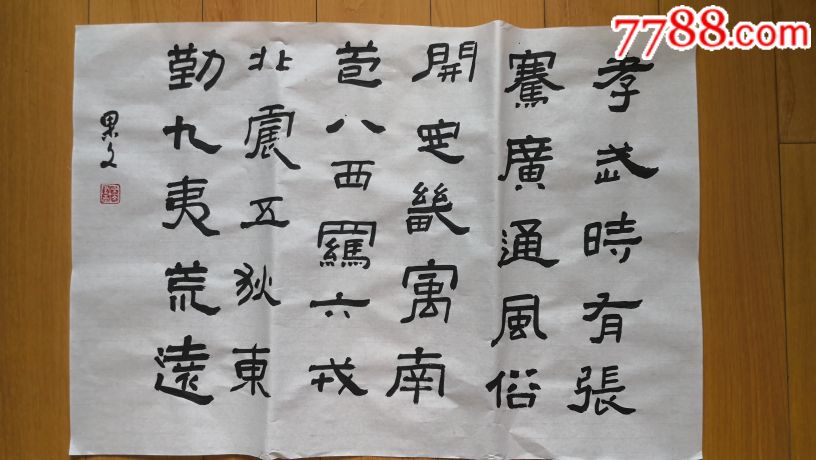 7788.com
孝武時有張
騫廣通風俗
開定畿寓南
苞八西羈六戎
北震五狄東
勤九夷荒遠
果文